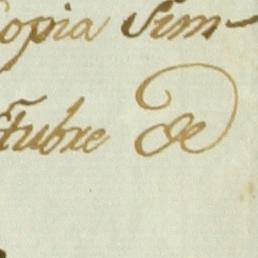 copia Sim-
tubre de